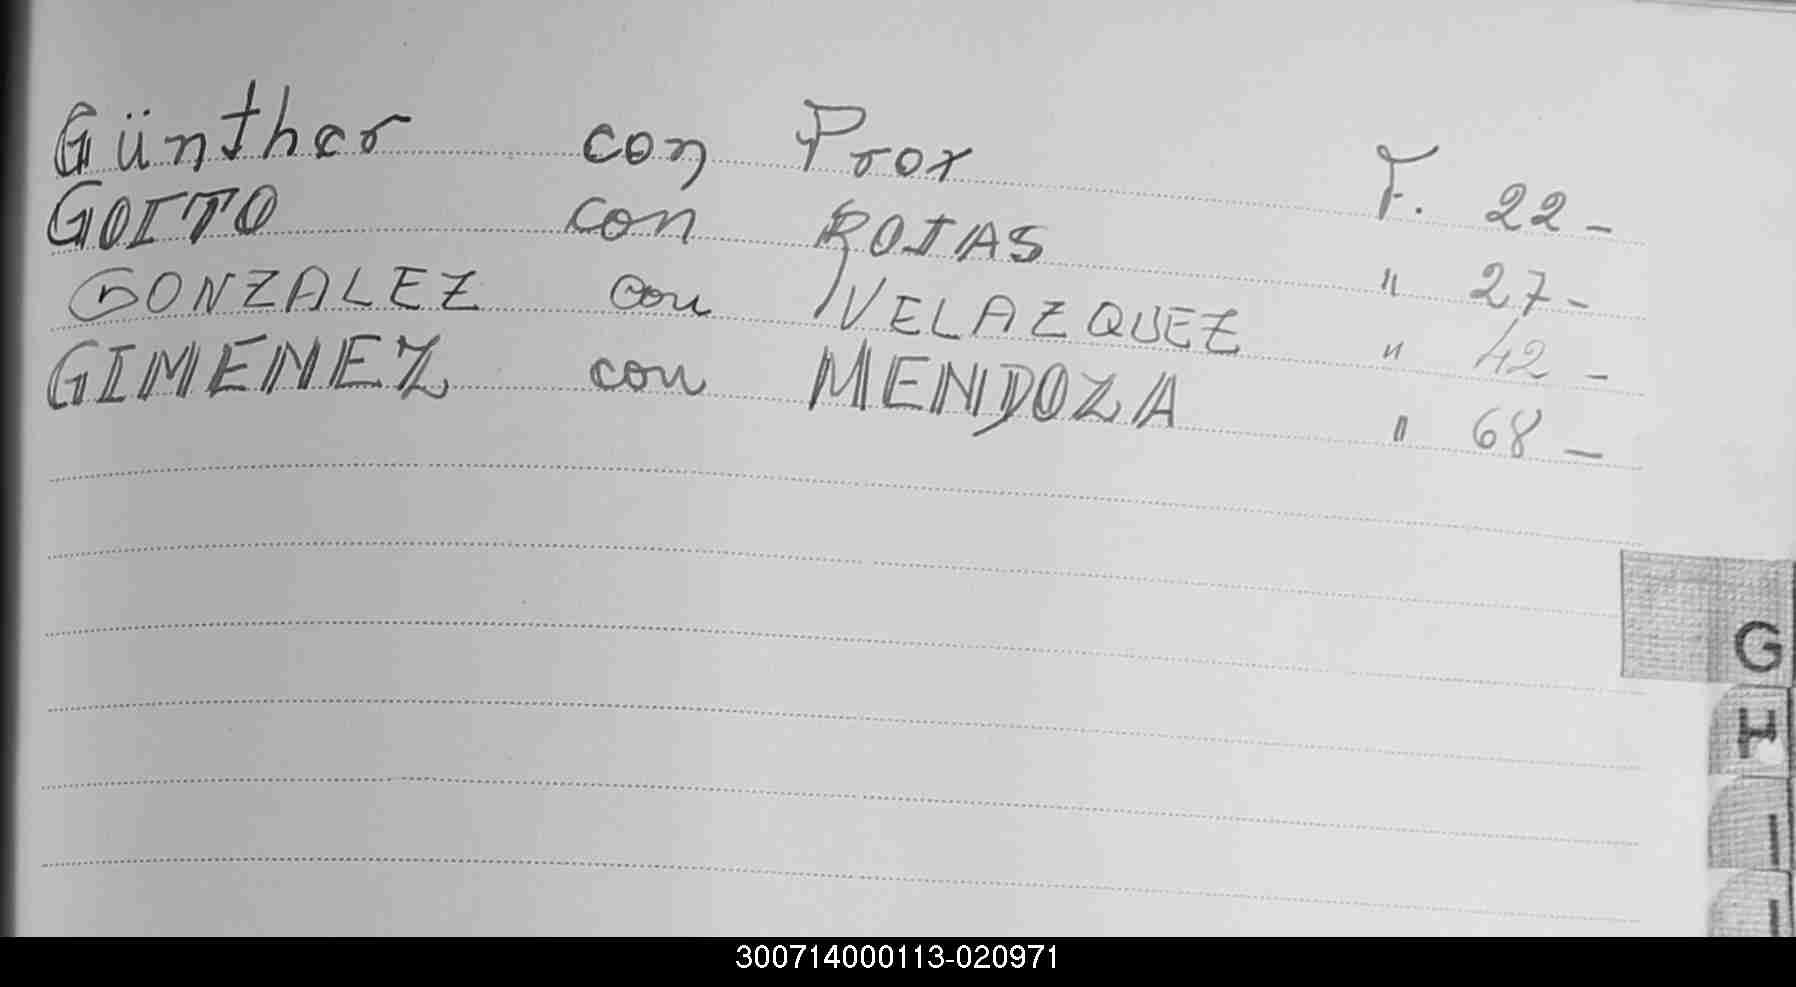 Günther con Prox F. 22-
GOITO con ROJAS " 27-
GONZALEZ con VELAZQUEZ " 42-
GIMENEZ con MENDOZA " 68-
G
H
I
300714000113-020971